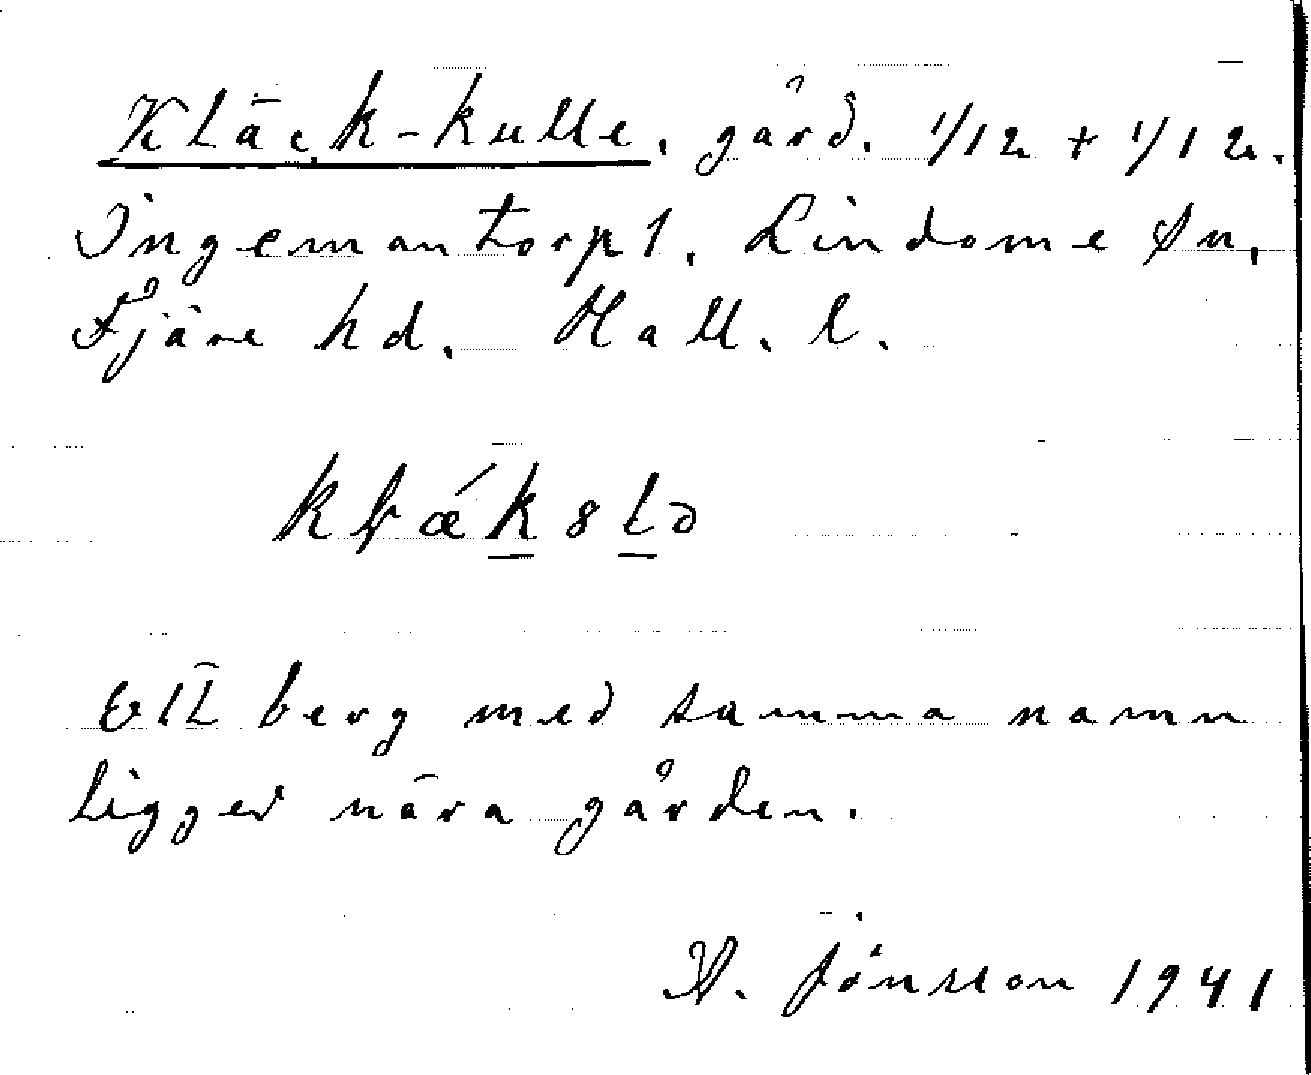 Kläck-kulle. gård. 1/12 + 1/12.
Ingemantorp 1. Lindome sn,
Fjäre hd. Hall. l.
Ett berg med samma namn
ligger nära gården.
A. Jönsson 1941